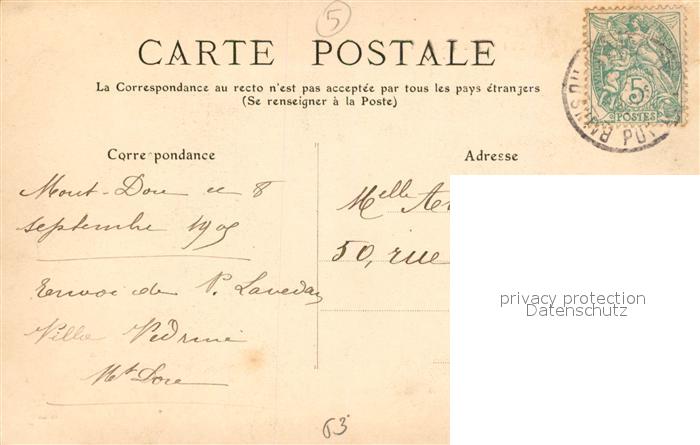 5
CARTE POSTALE
La Correspondance au recto n'est pas acceptée par tous les pays étrangers
(Se renseigner à la Poste)
5c
POSTES
Correspondance
Adresse
Mont-Dore ce 8
septembre 1905
Envoi de P. Lavedan
Villa Védrine
Mt Dore
Melle
50, rue
privacy protection
Datenschutz
63